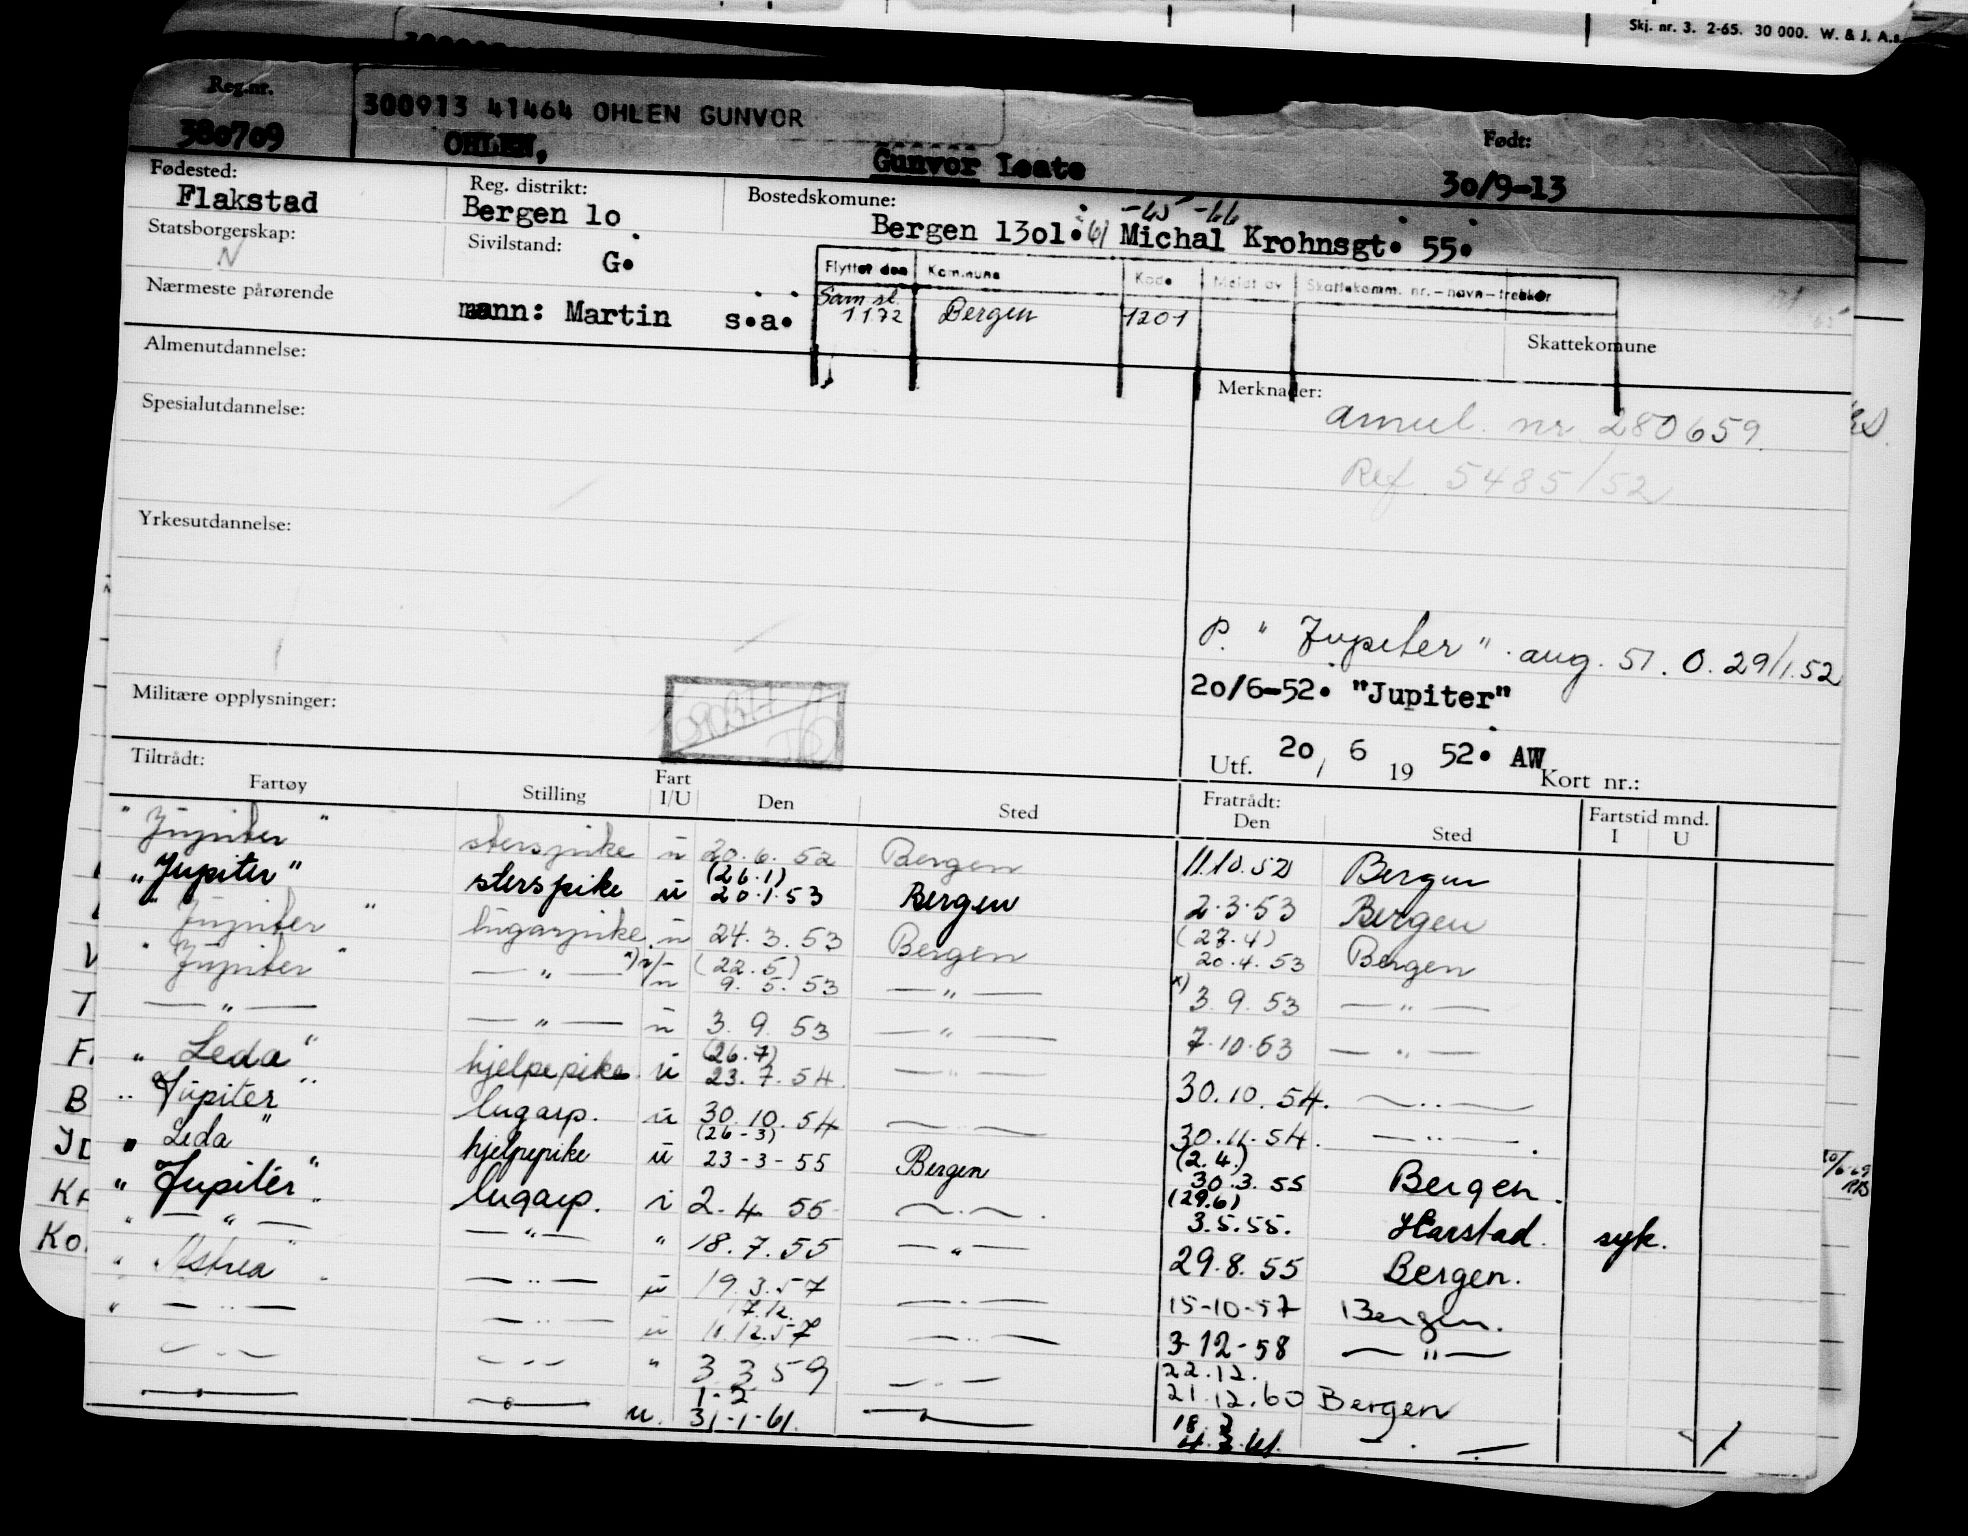 Skj. nr. 3. 2-65. 30 000. W. & J. A.s.
Reg.nr. 300913 41464 OHLEN GUNVOR
380709 OHLEN, Gunvor Leate Født: 30/9-13
Fødested: Flakstad Reg. distrikt: Bergen 10 Bostedskomune: -65 -66
Bergen 1301. 61 Michal Krohnsgt. 55.
Statsborgerskap: N Sivilstand: G.
Flyttet den Kommune Kode Meldt av Skattekomm. nr.-navn-trekkår
Nærmeste pårørende mann: Martin s.a. Sam sl. 1172 Bergen 1201
Skattekomune
Almenutdannelse:
Merknader:
Spesialutdannelse:
annul. nr. 280659
Ref 5485/52
Yrkesutdannelse:
P. "Jupiter" aug. 51. O. 29/1.52
20/6-52. "Jupiter"
Militære opplysninger:
Utf. 20/6 1952. AW Kort nr.:
Tiltrådt: Fratrådt: Fartstid mnd.
Fartøy Stilling Fart I/U Den Sted Den Sted I U
"Jupiter" sterspike u 20.6.52 Bergen 11.10.52 Bergen
"Jupiter" sterspike u (26.1) 20.1.53 Bergen 2.3.53 Bergen
"Jupiter" lugarpike u 24.3.53 Bergen (27.4) 20.4.53 Bergen
"Jupiter" — " — x) u (22.5) 9.5.53 — " — x) 3.9.53 — " —
— " — — " — u 3.9.53 — " — 7.10.53 — " —
"Leda" hjelpepike u (26.7) 23.7.54 — " — 30.10.54. — " —
"Jupiter" lugarp. u 30.10.54 — " — 30.11.54. — " —
"Leda" hjelpepike u (26-3) 23-3-55 Bergen (2.4.) 30.3.55 Bergen.
"Jupiter" lugarp. i 2.4.55 — " — (29.6) 3.5.55. Harstad. syk.
" — " — — " — " 18.7.55 — " — 29.8.55 Bergen.
"Astrea" — " — u 19.3.57 — " — 15-10-57 Bergen.
" — " — — " — u 17.12. 11.12.57 — " — 3-12-58 — " —
— " — — " — " 3.3.59 — " — 22.12. 21.12.60 Bergen
— " — — " — u. 1-2 31-1-61. — " — 4.3.61. — " —